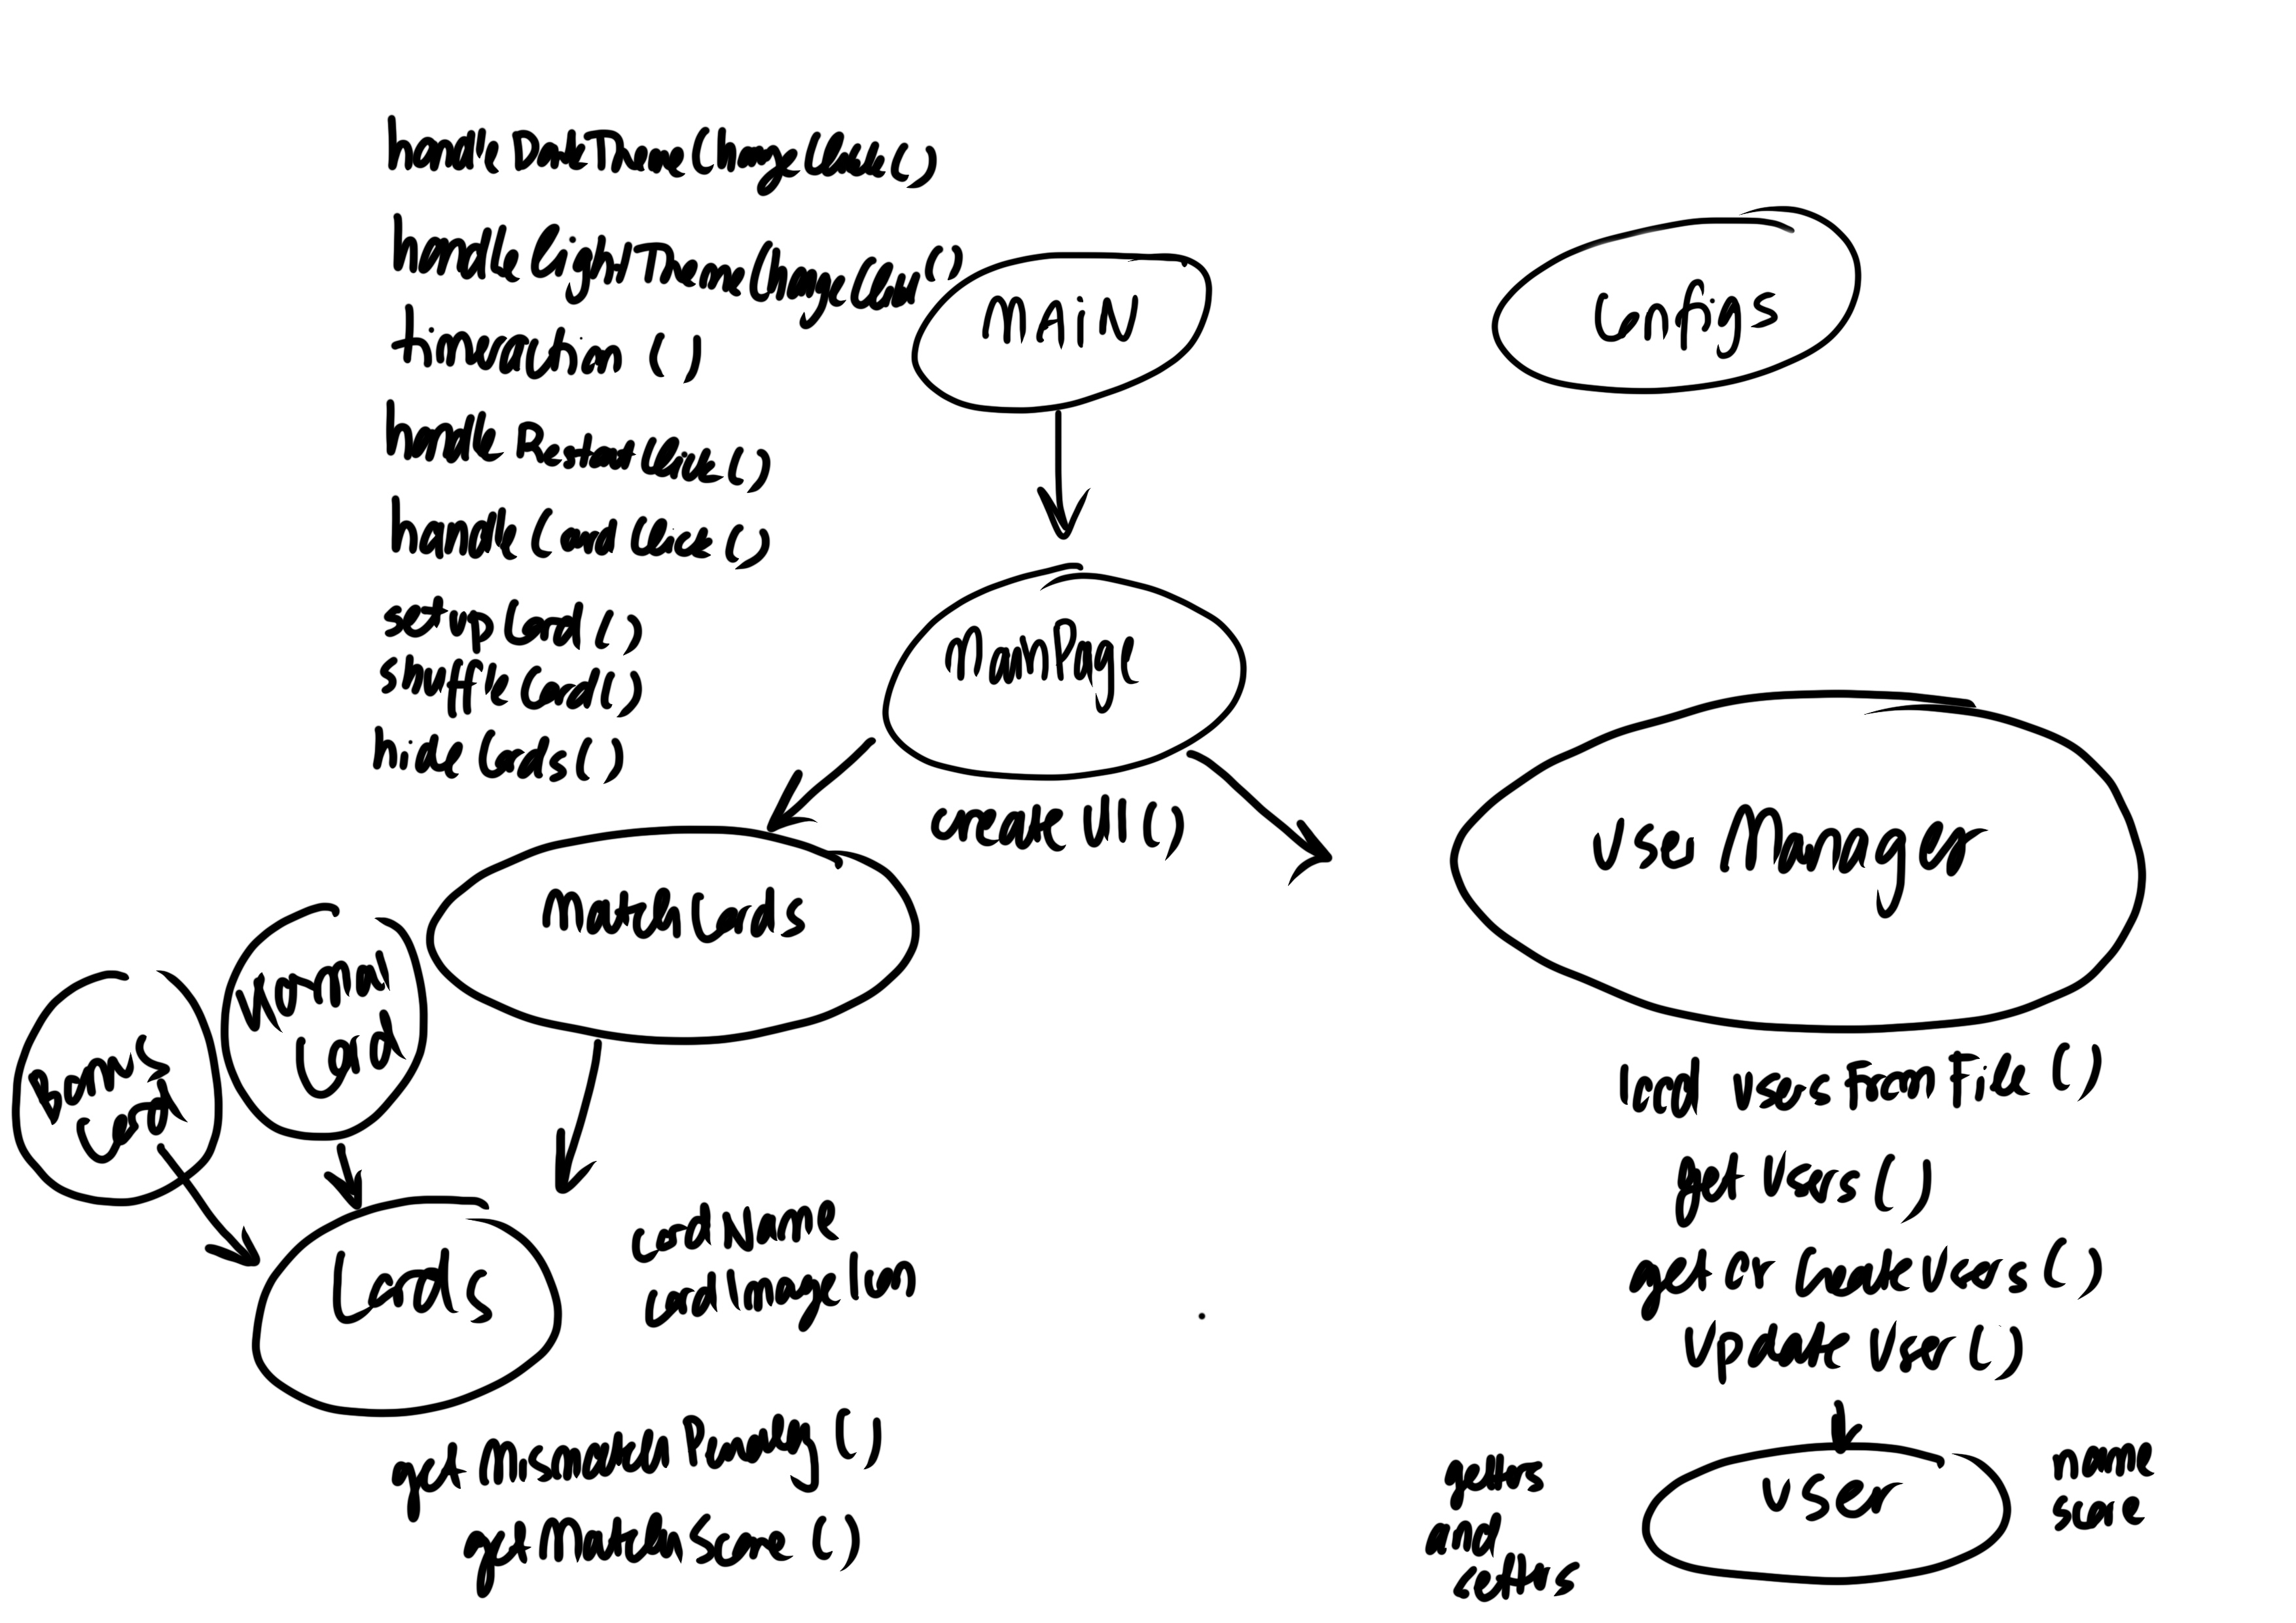 handle DarkThemeChangeClick()
handle lightThemeChangeClick()
timeraction ()
handle RestartClick()
handle Card Click()
setup Card ()
shuffle Card()
hide Cards()
MAiN
Configs
MainPage
create UI ()
Match Cards
User Manager
Normal
Card
Bonus
Card
Cards
card Name
card Image Icon
get Mismatch Penalty ()
get Match Score ()
load users From File ()
get Users ()
get or Create Users ()
Update User ()
User
name
score
getters
and
setters